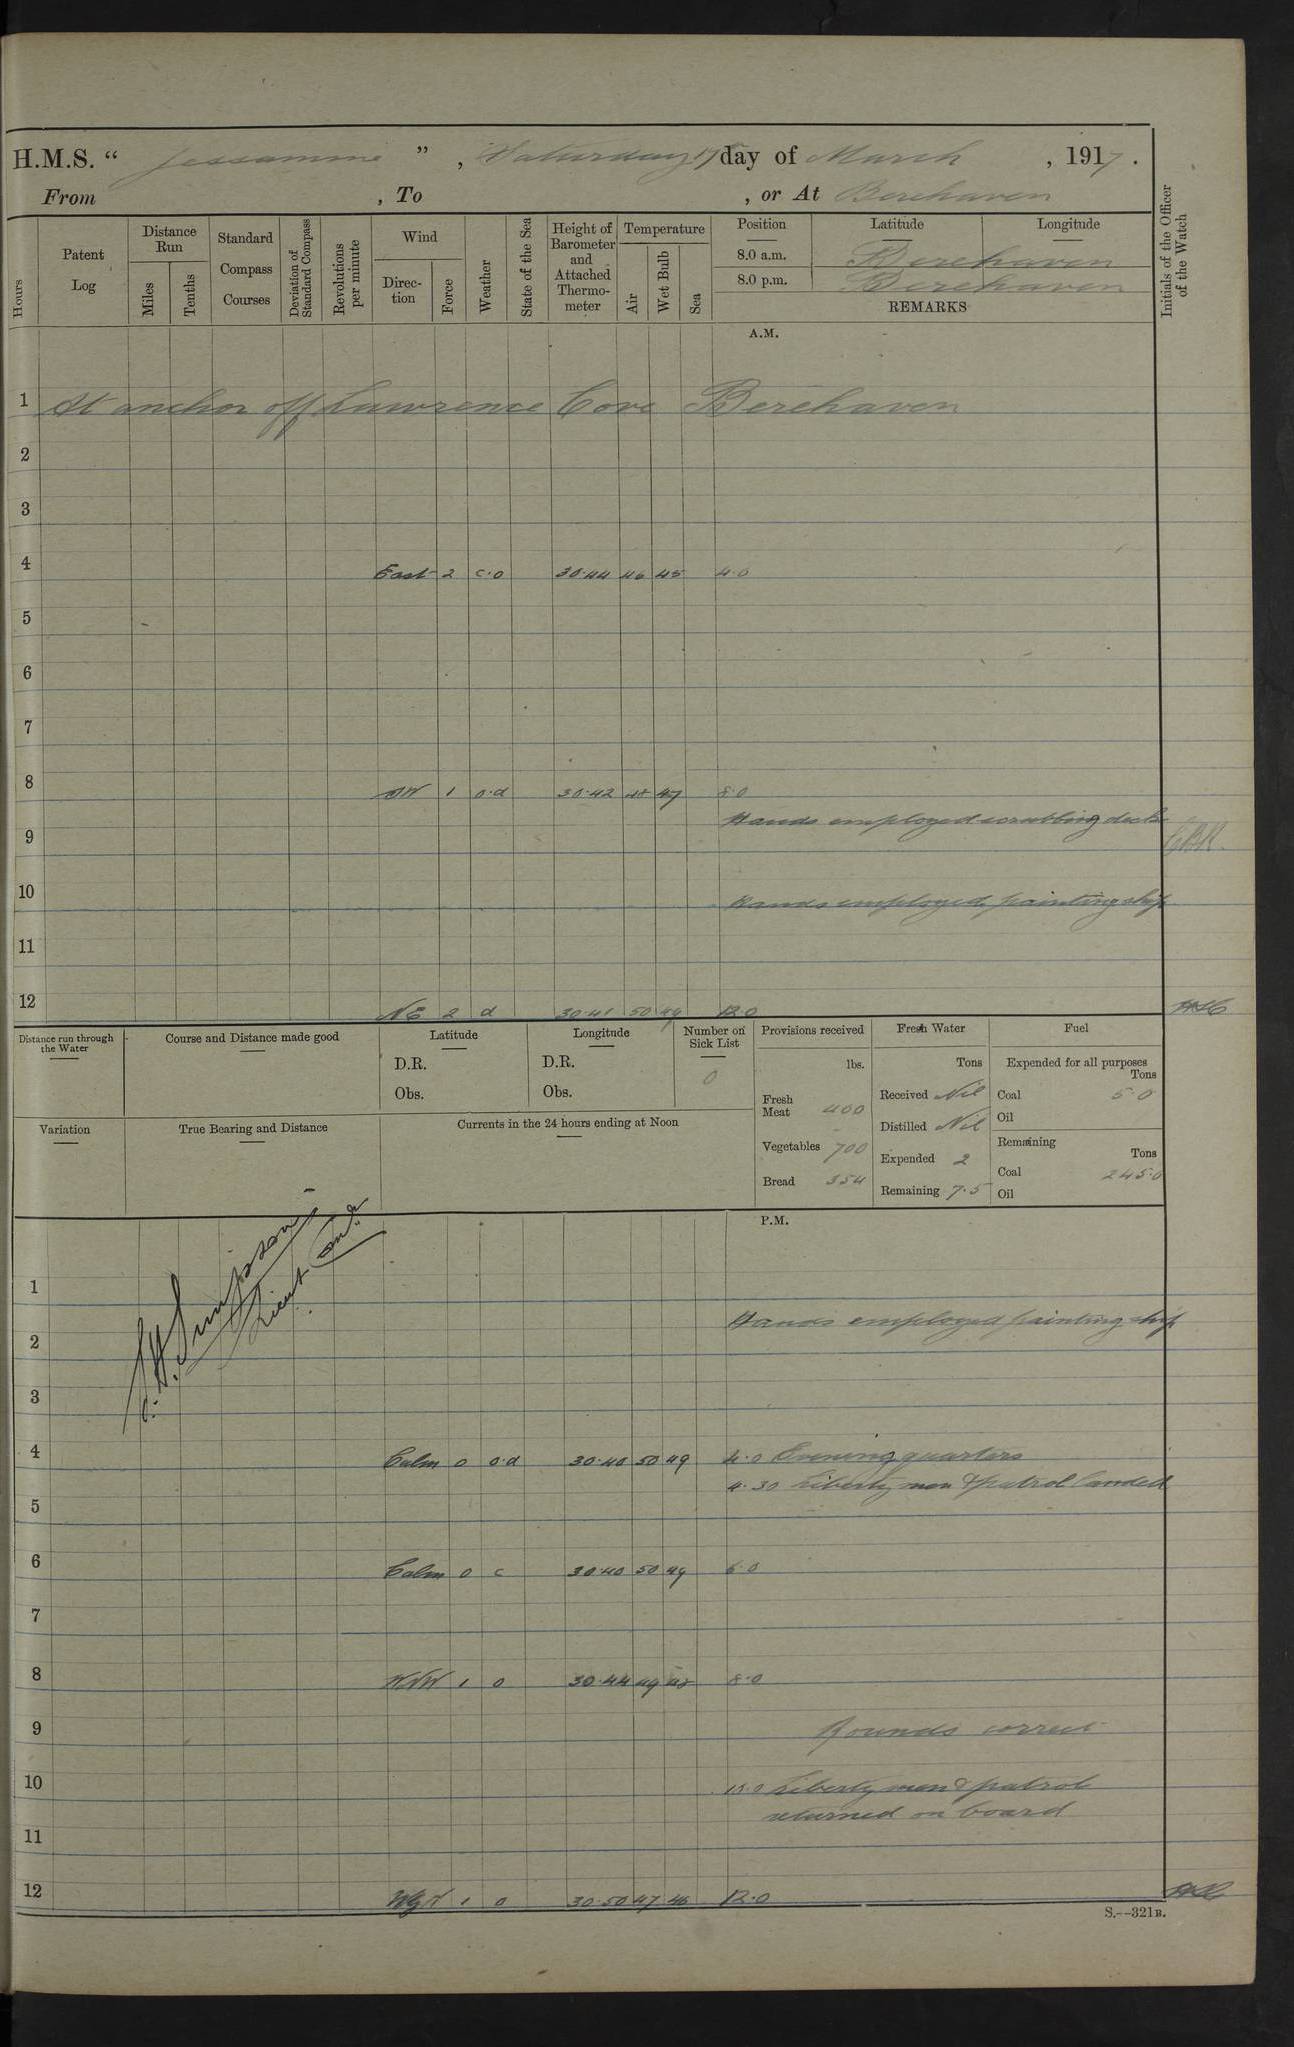 H.M.S. “ Jessamine ” , Saturday 17th day of March , 1917 .
From , To , or At Berehaven
Hours
Patent Log
Distance Run
Miles
Tenths
Standard Compass Courses
Deviation of Standard Compass
Revolutions per minute
Wind
Direction
Force
Weather
State of the Sea
Height of Barometer and Attached Thermometer
Temperature
Air
Wet Bulb
Sea
Position Latitude Longitude
8.0 a.m. Berehaven
8.0 p.m. Berehaven
REMARKS
Initials of the Officer of the Watch
A.M.
1 At anchor off Lawrence Cove Berehaven
2
3
4 East 2 c.o 30.44 46 45 4.0
5
6
7
8 1 o.d 30.42 48 47 8.0
Hands employed scrubbing decks
9
10 Hands employed painting ship
11
12 NE 2 d 30.41 50 49 12.0
Distance run through the Water
Course and Distance made good
Latitude
D.R.
Obs.
Longitude
D.R.
Obs.
Number on Sick List
0
Provisions received
lbs.
Fresh Meat 400
Vegetables 700
Bread 354
Fresh Water
Tons
Received Nil
Distilled Nil
Expended 2
Remaining 7.5
Fuel
Expended for all purposes
Tons
Coal 5.0
Oil
Remaining
Tons
Coal 245.0
Oil
Variation
True Bearing and Distance
Currents in the 24 hours ending at Noon
P.M.
Simpson
Lieut Comdr
1
Hands employed painting ship
2
3
4 Calm 0 o.d 30.40 50 49 4.0 Evening quarters
4.30 Liberty men & patrol landed
5
6 Calm 0 c 30.40 50 49 6.0
7
8 WNW 1 o 30.44 49 48 8.0
9 Rounds correct
10 10.0 Liberty men & patrol
returned on board
11
12 WbyN 1 o 30.50 47 46 12.0
S.--321B.